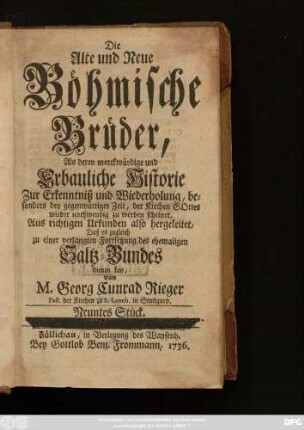 Die
Alte und Neue
Böhmische
Brüder,
Als deren merckwürdige und
Erbauliche Historie
Zur Erkenntniß und Wiederholung, be-
sonders bey gegenwärtiger Zeit, der Kirchen GOttes
wieder nothwendig zu werden scheinet,
Aus richtigen Urkunden also hergeleitet,
Daß es zugleich
zu einer verlangten Fortsetzung des ehemaligen
Saltz-Bundes
dienen kan,
von
M. Georg Cunrad Rieger
Past. der Kirchen zu S. Leonh. in Stuttgard.
Neuntes Stück.
Züllichau, in Verlegung des Waysenh.
Bey Gottlob Benj. Frommann, 1736.